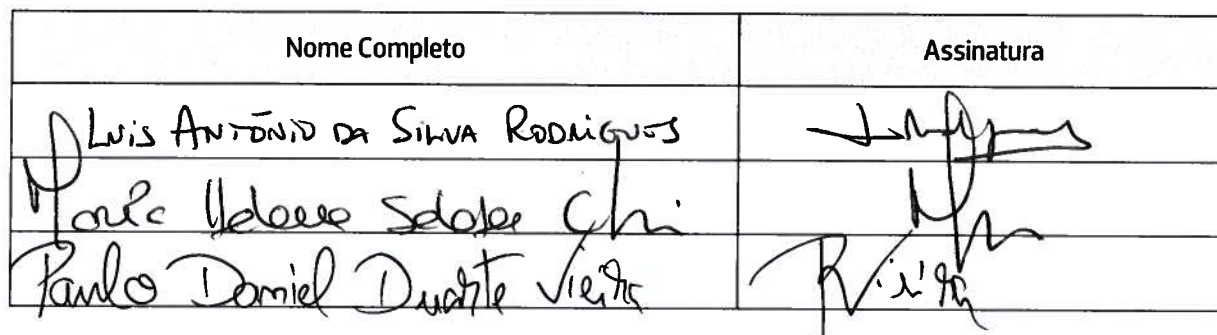 Nome Completo Assinatura
Luis António da Silva Rodrigues
Maria Helena
Paulo Daniel Duarte Vieira Vieira